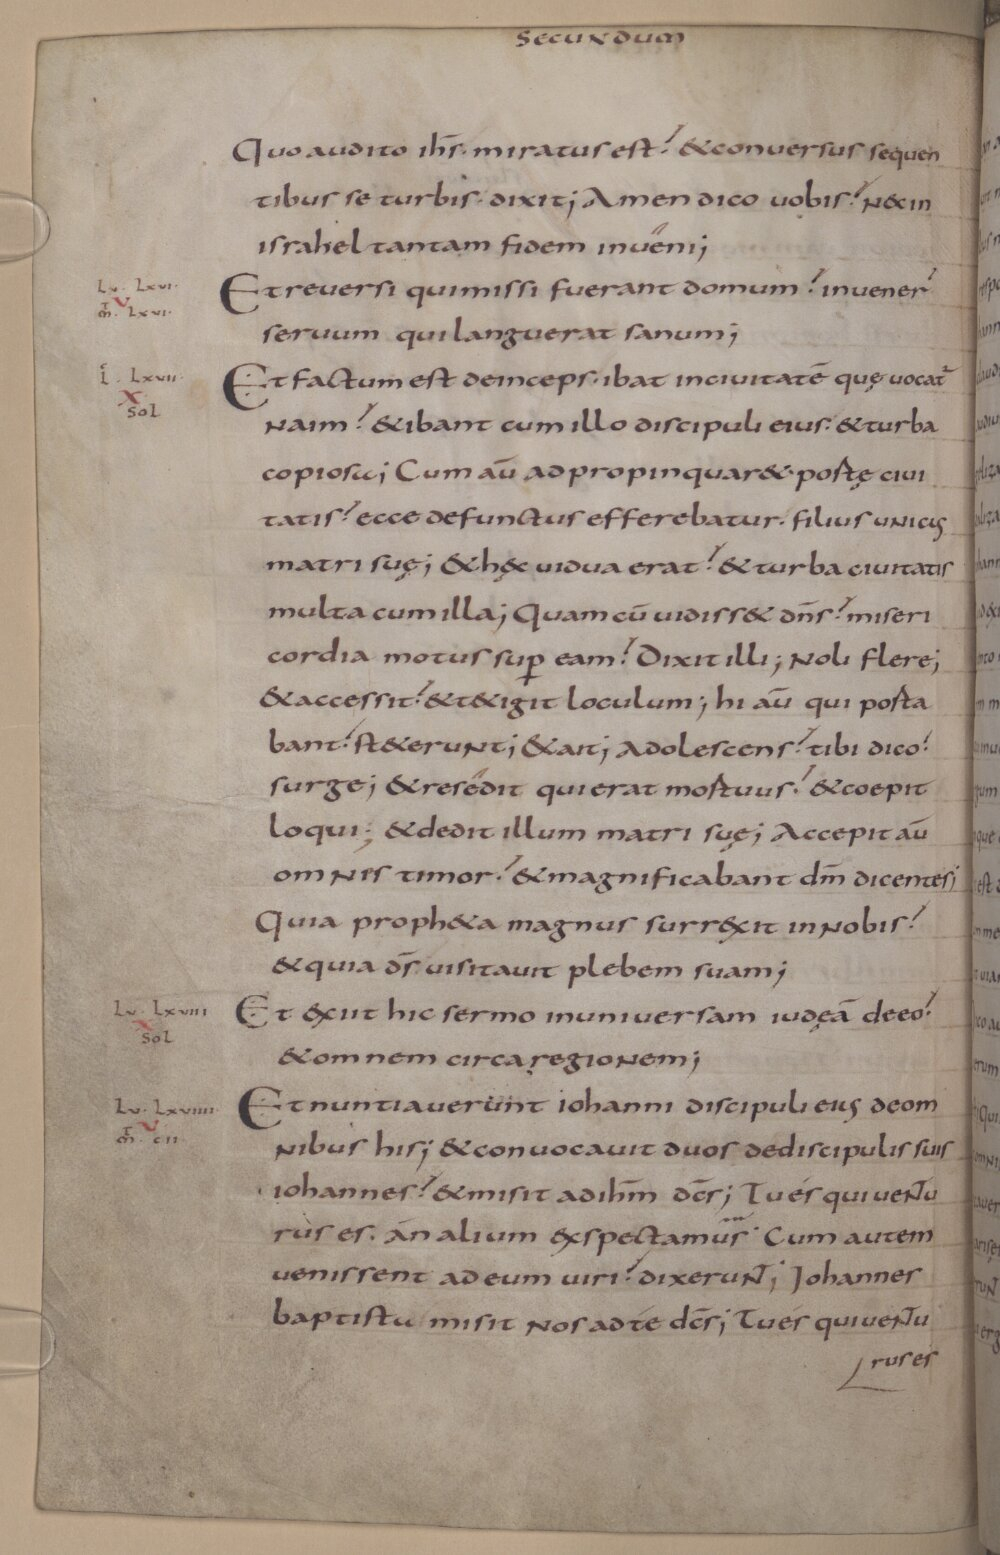 Secundum
Quo audito ihs̄· miratus est? & conuersus sequen
tibus se turbis· dixit; Amen dico uobis? nec in
israhel tantam fidem inueni;
Lu· Lxvi·
Et reuersi qui missi fuerant domum? inuener̄
m̄· Lxvi·
seruum qui languerat sanum;
L · Lxvii·
Et factum est deinceps· ibat in ciuitatē quę uocat̄
sol
naim? & ibant cum illo discipuli eius· & turba
copiosa; Cum aū adpropinquar& portę ciui
tatis? ecce defunctus efferebatur· filius unicus
matri suę; & hęc uidua erat? & turba ciuitatis
multa cum illa; Quam cū uidiss& dn̄s? miseri
cordia motus sup̄ eam? Dixit illi; Noli flere;
& accessit? & t&igit loculum; hi aū qui porta
bant? st&erunt; & ait; Adolescens? tibi dico?
surge; & resedit qui erat mortuus? & coepit
loqui; & dedit illum matri suę; Accepit aū
omnes timor? & magnificabant dm̄ dicentes;
Quia proph&a magnus surrexit in nobis?
& quia ds̄ uisitauit plebem suam;
Lu· Lxviii
Et exiit hic sermo in uniuersam iudęā de eo?
sol
& omnem circa regionem;
Lu· Lxviiii
Et nuntiauerunt iohanni discipuli eius de om
m̄· cii
nibus his; & conuocauit duos de discipulis suis
iohannes? & misit ad ihm̄ dc̄s; Tu és qui uentu
rus es· án alium exspectamus Cum autem
uenissent ad eum uiri? dixerunt; Iohannes
baptista misit nos ad té dc̄s; Tu és qui uentu
rus es